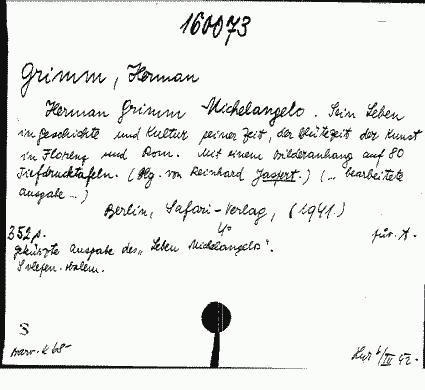 160073
Grimm, Herman
Herman Grimm Michelangelo. Sein Leben
in Geschichte und Kultur seiner Zeit, der Blütezeit der Kunst
in Florenz und Rom. Mit einem Bilderanhang auf 80
Tiefdrucktafeln. (Hg. von Reinhard Jaspert.) (... bearbeitete
Ausgabe ...)
Berlin, Safari-Verlag, (1941.)
352 p. 4°
gekürzte Ausgabe des „Leben Michelangelo's".
S